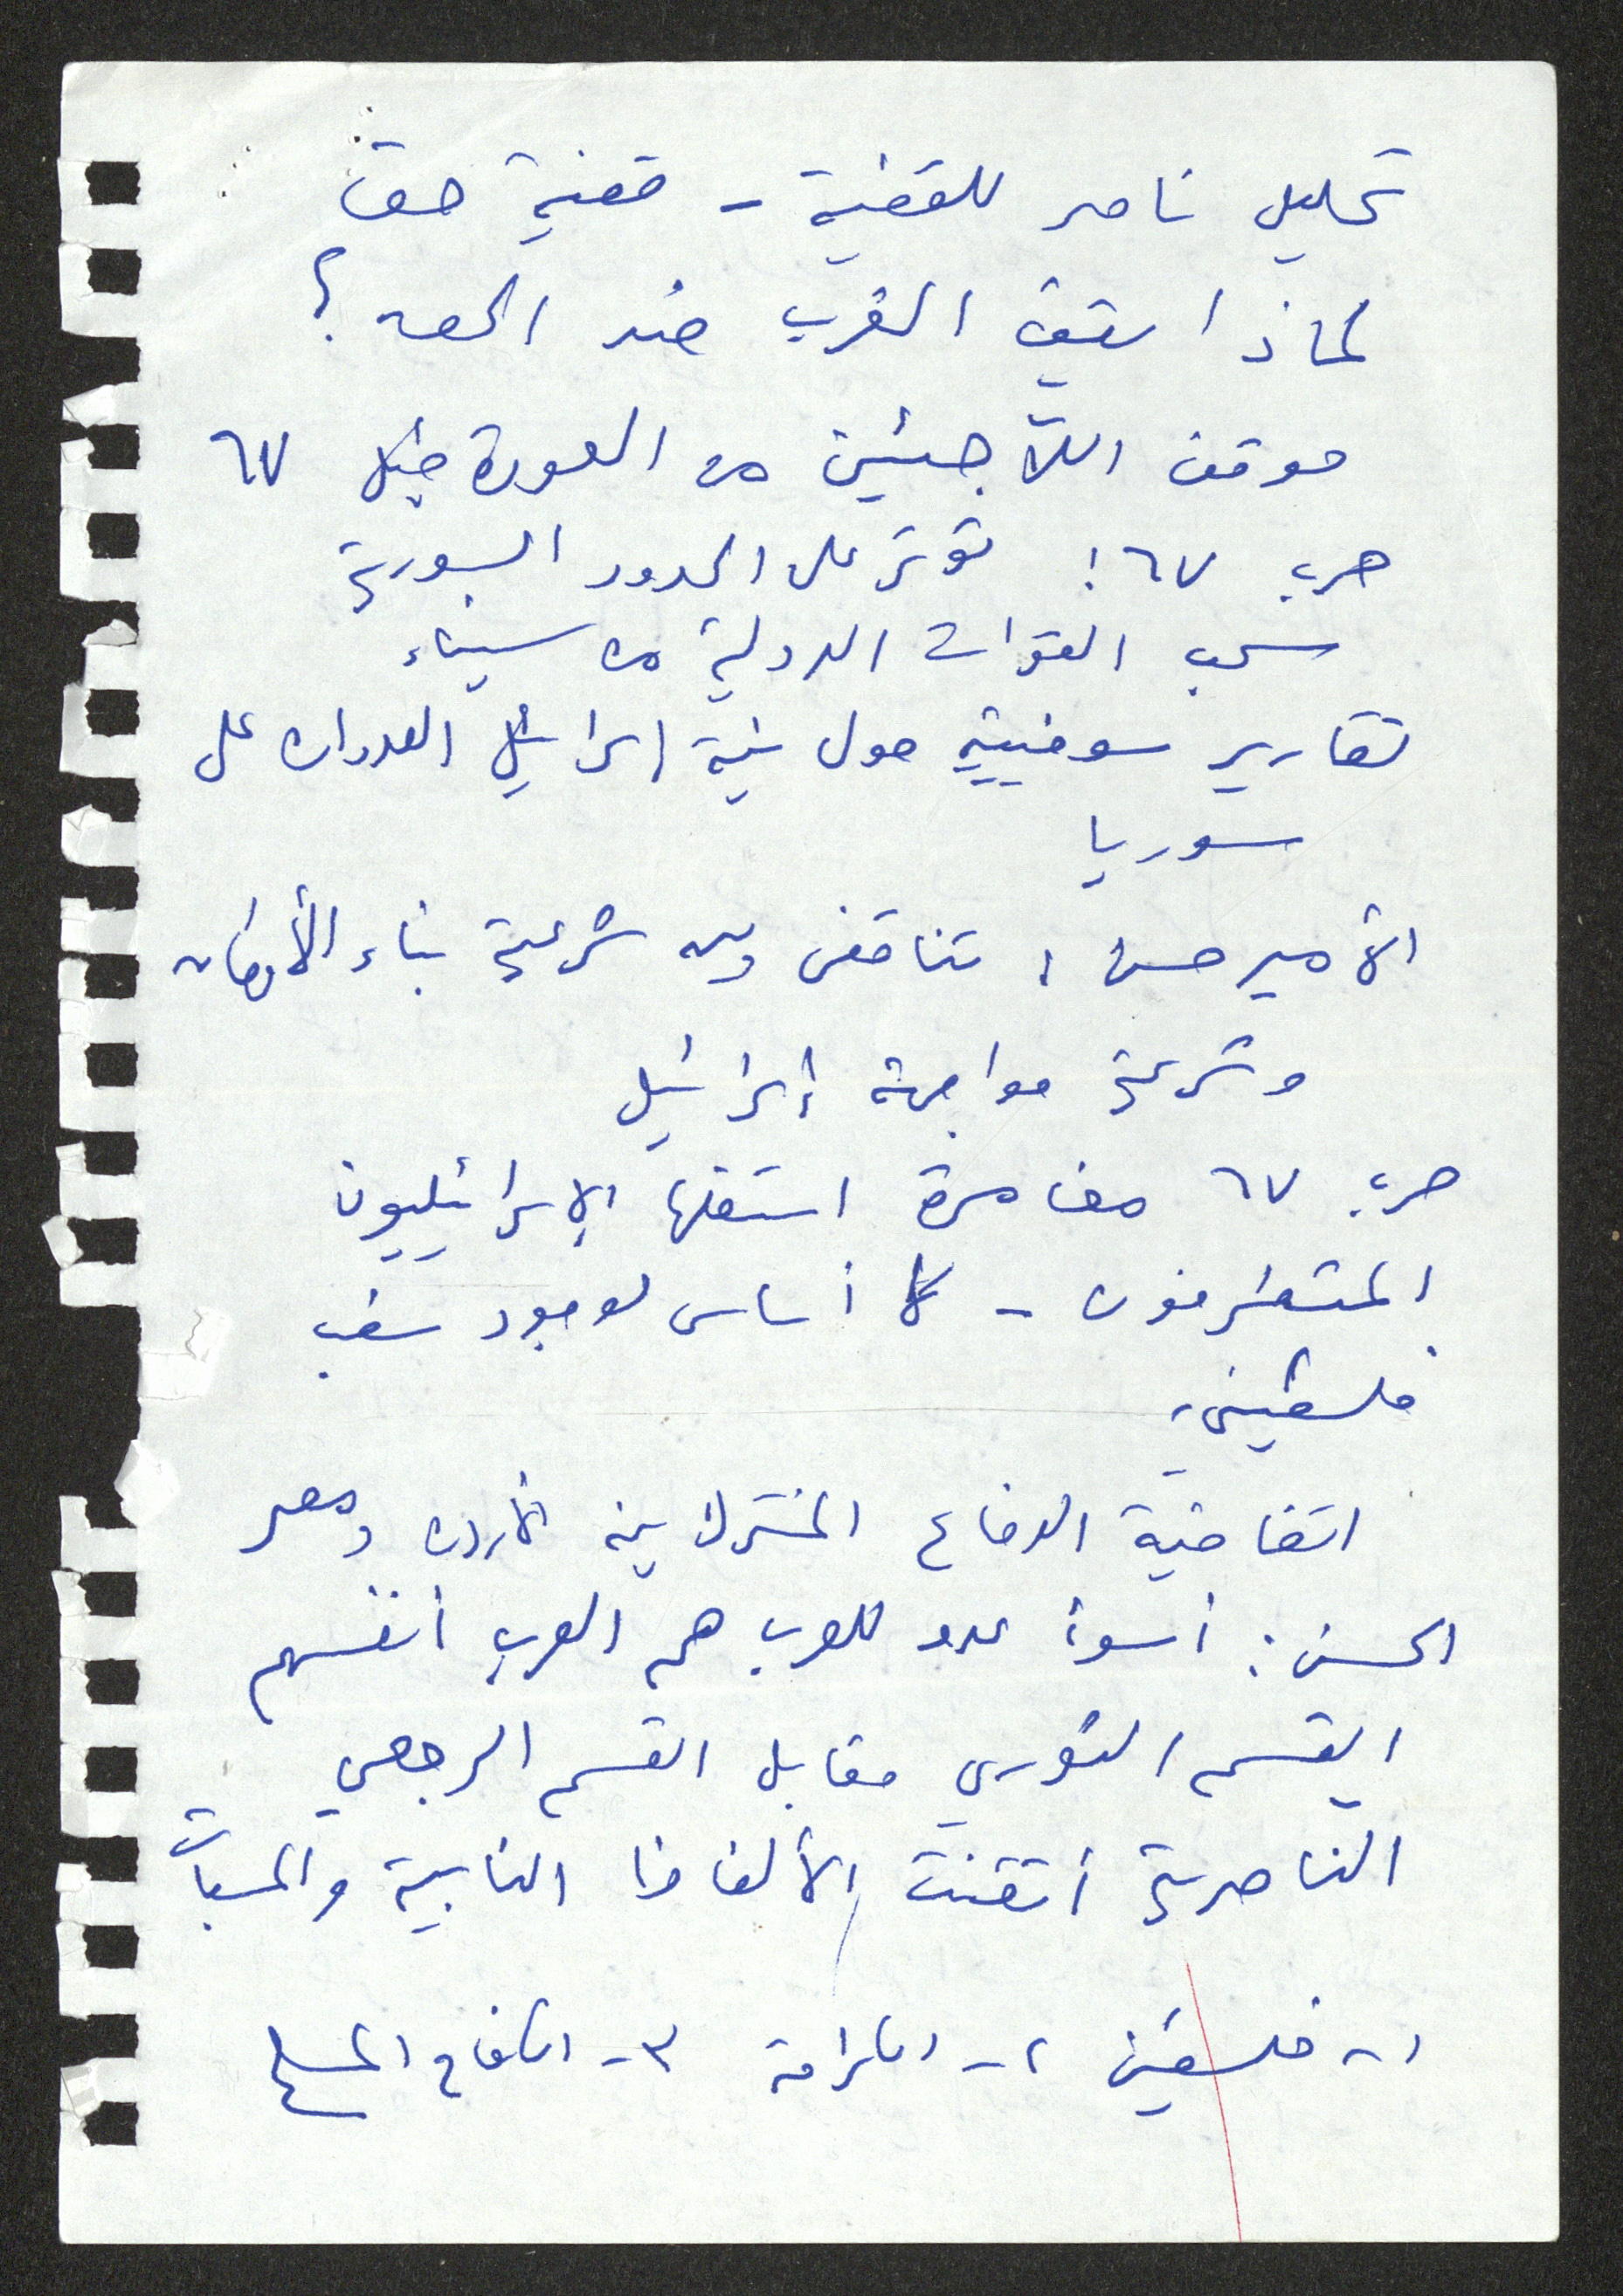 تحليل ناصر للقضية - قضية حق
لماذا يقف الغرب ضد الحق ؟
موقف اللآجئين من العودة قبل ٦٧
حرب ٦٧ : توتر على الحدود السورية
سحب القوات الدولية من سيناء
تقارير سوفييتية حول نية إسرائيل العدوان على
سوريا
الأمير حسن : تناقض بين شرعية بناء الأوطان
وشرعية مواجهة إسرائيل
حرب ٦٧ مغامرة استغلها الإسرائيليون
المتطرفون - لا أساس لوجود شعب
فلسطيني -
اتفاقية الدفاع المشترك بين الأردن ومصر
الحسن : أسوأ عدو للعرب هم العرب أنفسهم
القسم الثوري مقابل القسم الرجعي
الناصرية أتقنت الألفاظ النابية والمسبات
١- فلسطين ٢- الكرامة ٣- الكفاح المسلح